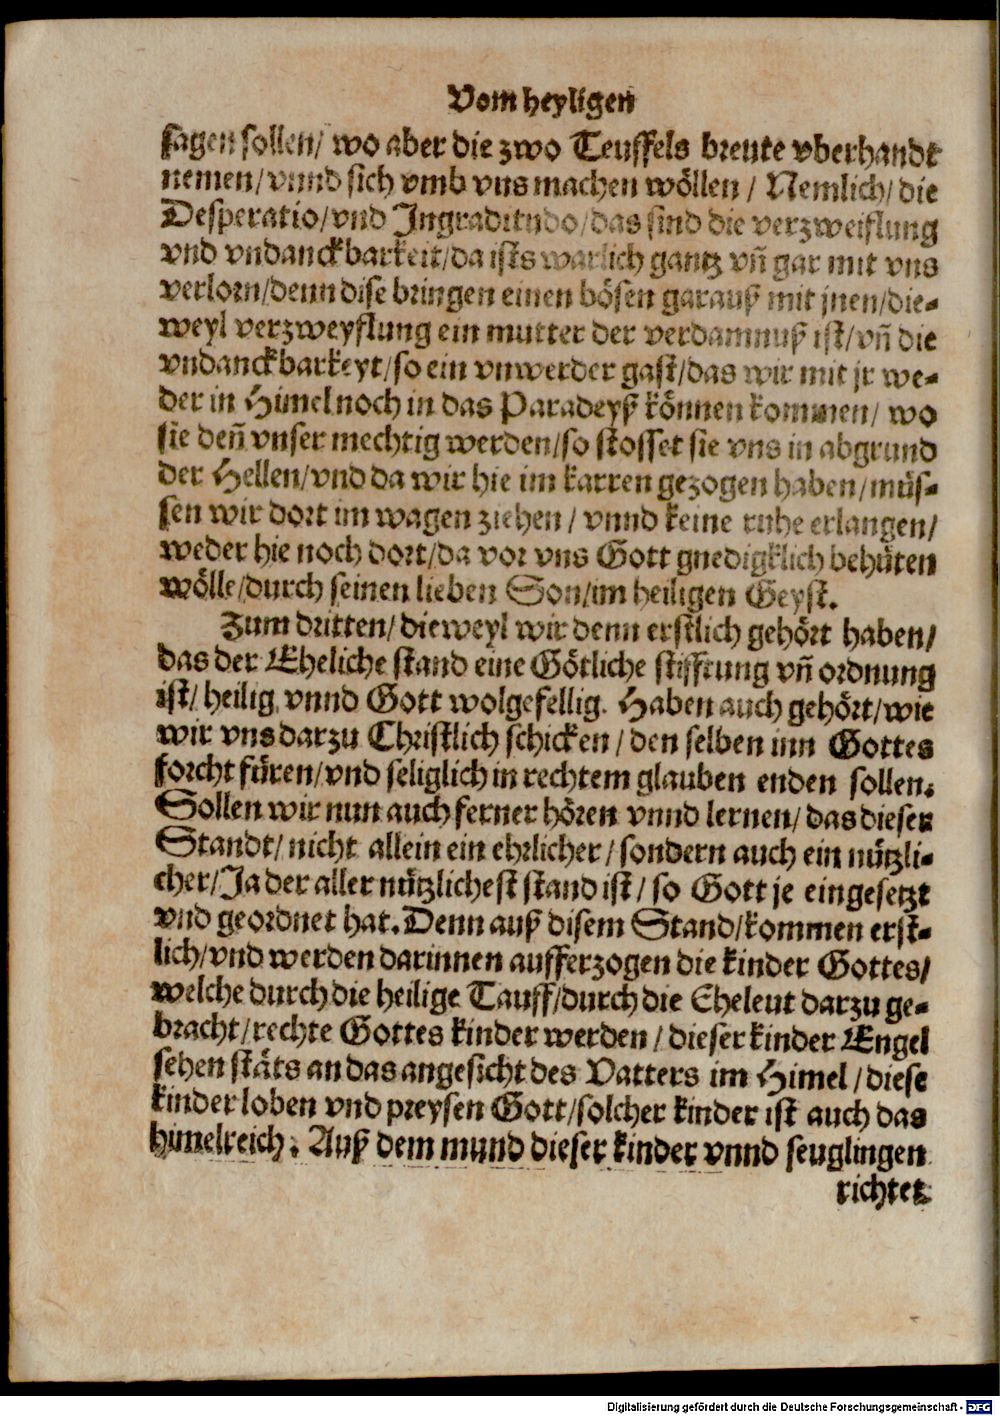 Vom heyligen
sagen sollen/ wo aber die zwo Teuffels breute vberhandt
nemen/ vnnd sich vmb vns machen wöllen / Nemlich/ die
Desperatio/ vnd Ingraditudo/ das sind die verzweiflung
vnd vndanckbarkeit/ da ists warlich gantz vñ gar mit vns
verlorn/ denn dise bringen einen bösen garauß mit jnen/ die-
weyl verzweyflung ein mutter der verdamnuß ist/ vñ die
vndanckbarkeyt/ so ein vnwerder gast/ das wir mit jr we-
der in Himel noch in das Paradeyß können kommen/ wo
sie deñ vnser mechtig werden/ so stosset sie vns in abgrund
der Hellen/ vnd da wir hie im karren gezogen haben/ müs-
sen wir dort im wagen ziehen / vnnd keine ruhe erlangen/
weder hie noch dort/ da vor vns Gott gnedigklich behüten
wölle/ durch seinen lieben Son/ im heiligen Geyst.
Zum dritten/ dieweyl wir denn erstlich gehört haben/
das der Eheliche stand eine Götliche stifftung vñ ordnung
ist/ heilig vnnd Gott wolgefellig. Haben auch gehört/ wie
wir vns darzu Christlich schicken / den selben inn Gottes
forcht füren/ vnd seliglich in rechtem glauben enden sollen.
Sollen wir nun auch ferner hören vnnd lernen/ das dieser
Standt/ nicht allein ein ehrlicher / sondern auch ein nützli-
cher/ Ja der aller nützlichest stand ist/ so Gott je eingesetzt
vnd geordnet hat. Denn auß disem Stand/ kommen erst-
lich/ vnd werden darinnen aufferzogen die kinder Gottes/
welche durch die heilige Tauff/ durch die Eheleut darzu ge-
bracht/ rechte Gottes kinder werden / dieser kinder Engel
sehen stäts an das angesicht des Vatters im Himel / diese
kinder loben vnd preysen Gott/ solcher kinder ist auch das
himelreich. Auß dem mund dieser kinder vnnd seuglingen
richtet
Digitalisierung gefördert durch die Deutsche Forschungsgemeinschaft - DFG